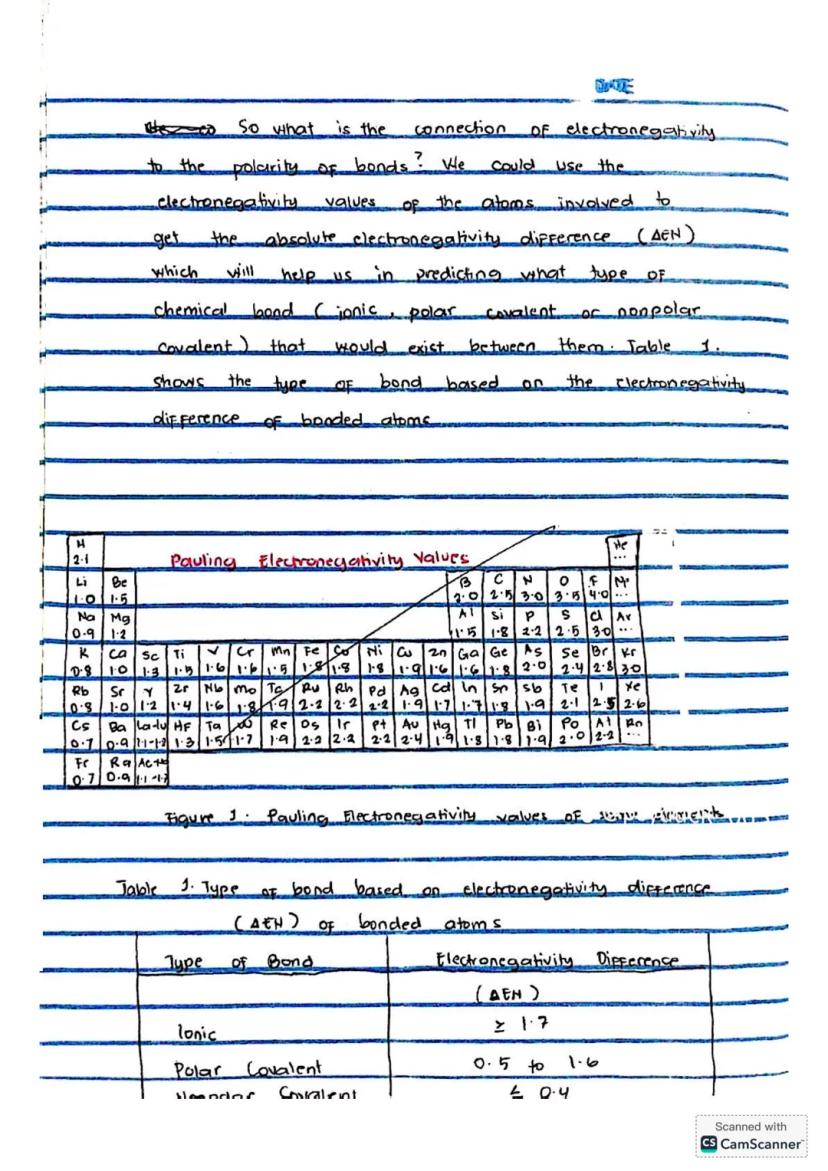 DATE
So what is the connection of electronegativity
to the polarity of bonds? We could use the
electronegativity values of the atoms involved to
get the absolute electronegativity difference (ΔEN)
which will help us in predicting what type of
chemical bond (ionic, polar covalent or nonpolar
covalent) that would exist between them. Table 1.
shows the type of bond based on the electronegativity
difference of bonded atoms
H He
2.1 Pauling Electronegativity Values ...
Li Be B C N O F
1.0 1.5 2.0 2.5 3.0 3.5 4.0 ...
Na Mg Al Si P S Cl Ar
0.9 1.2 1.5 1.8 2.2 2.5 3.0 ...
K Ca Sc Ti V Cr Mn Fe Co Ni Cu Zn Ga Ge As Se Br Kr
0.8 1.0 1.3 1.5 1.6 1.6 1.5 1.8 1.8 1.8 1.9 1.6 1.6 1.8 2.0 2.4 2.8 3.0
Rb Sr Y Zr Nb Mo Tc Ru Rh Pd Ag Cd In Sn Sb Te I Xe
0.8 1.0 1.2 1.4 1.6 1.8 1.9 2.2 2.2 2.2 1.9 1.7 1.7 1.8 1.9 2.1 2.5 2.6
Cs Ba La-Lu Hf Ta W Re Os Ir Pt Au Hg Tl Pb Bi Po At Rn
0.7 0.9 1.1-1.2 1.3 1.5 1.7 1.9 2.2 2.2 2.2 2.4 1.9 1.8 1.8 1.9 2.0 2.2 ...
Fr Ra
0.7 0.9
Figure 1. Pauling Electronegativity values of some elements
Table 1. Type of bond based on electronegativity difference
(ΔEN) of bonded atoms
Type of Bond Electronegativity Difference
(ΔEN)
Ionic ≥ 1.7
Polar Covalent 0.5 to 1.6
Nonpolar Covalent ≤ 0.4
Scanned with
CS CamScanner